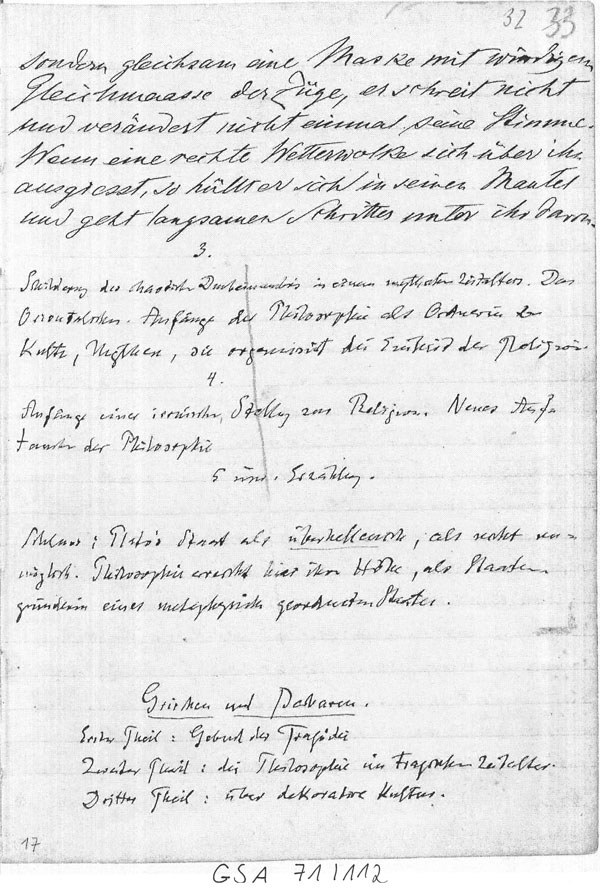 32 33
sondern gleichsam eine Maske mit würdigem
Gleichmaasse der Züge, er schreit nicht
und verändert nicht einmal seine Stimme.
Wenn eine rechte Wetterwolke sich über ihn
ausgiesst, so hüllt er sich in seinen Mantel
und geht langsamen Schrittes unter ihr davon.
3.
Schilderung des in einem mythischen Zeitalters. Das
Orientalische. Anfänge der Philosophie als Ordnerin der
Kulte, Mythen, sie organisirt die Einheit der Religion
4.
Anfänge einer ironischen Stellung zur Religion. Neues Auf
tauchen der Philosophie
5 usw. Erzählung.
Schluss: Plato's Staat als überhellenisch, als nicht un-
möglich. Philosophie erreicht hier ihre Höhe, als Staaten
gründerin eines metaphysisch geordneten Staates.
Griechen und Barbaren.
Erster Theil: Geburt der Tragödie
Zweiter Theil: die Philosophie im tragischen Zeitalter.
Dritter Theil: über dekorative Kultur.
17
GSA 71/112